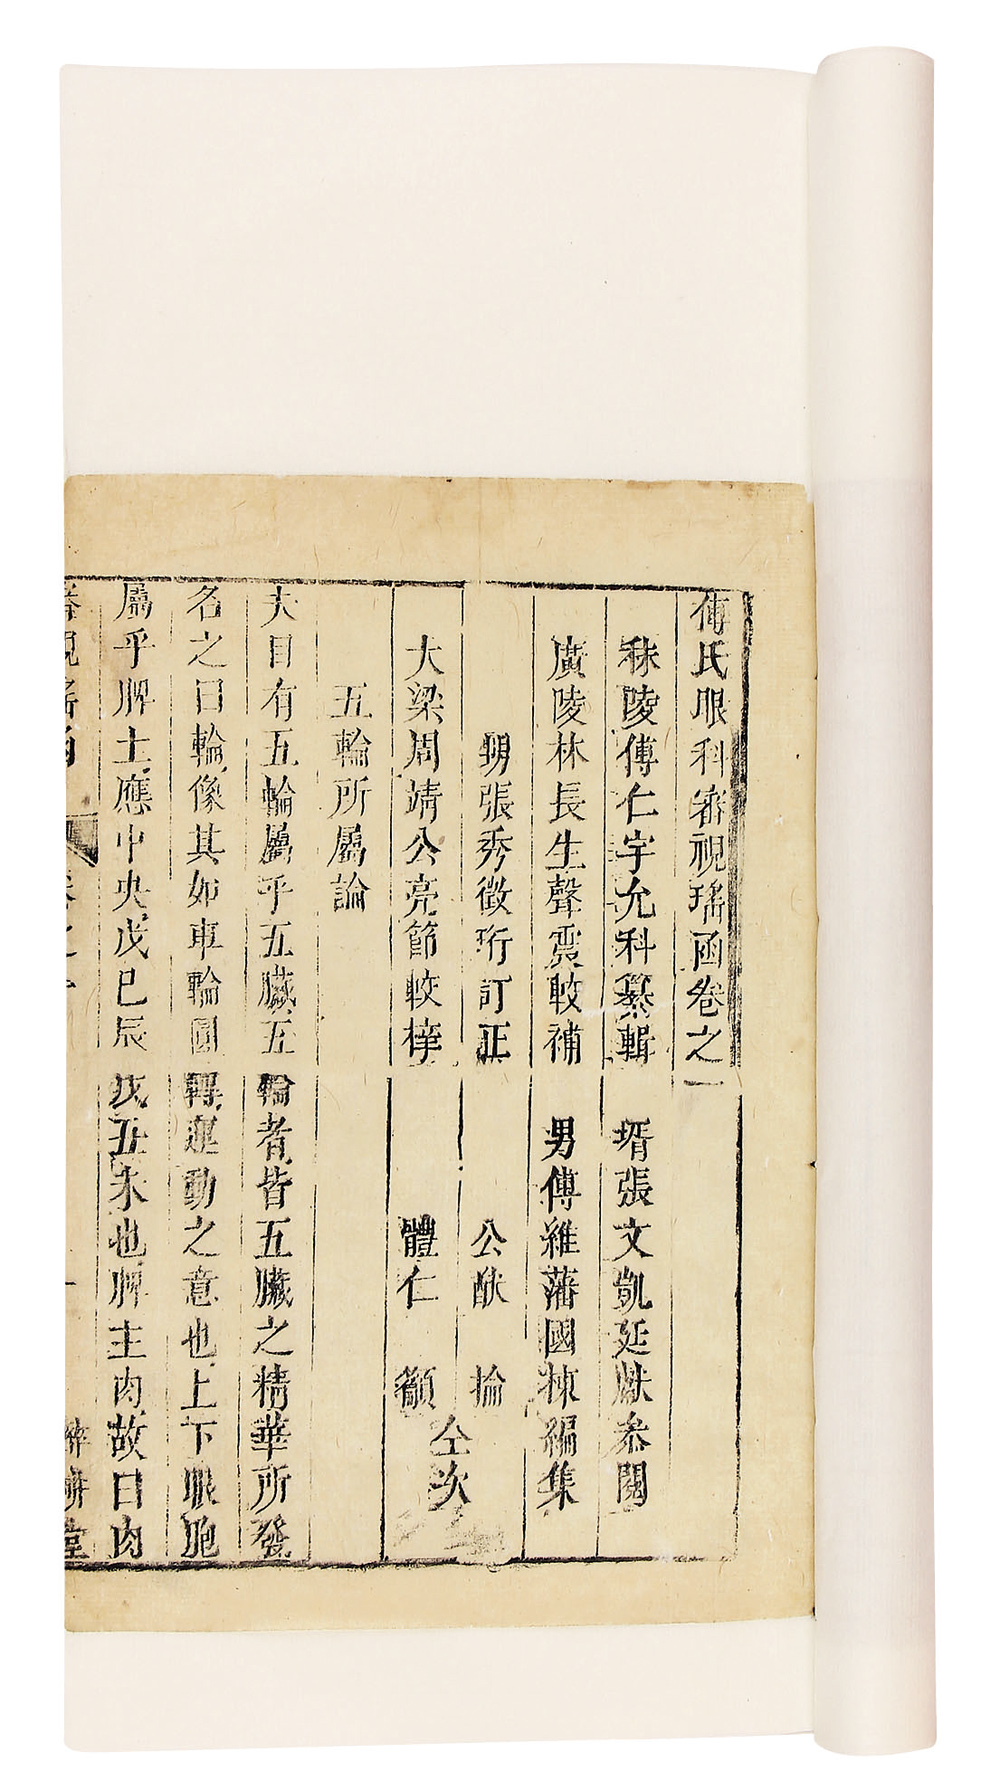 傅氏眼科審視瑤函卷之一
秣陵傅仁宇允科纂輯 壻張文凱延獻叅閱
廣陵林長生聲震較補 男傅維藩國棟編集
甥張秀徵珩訂正 公猷 掄
大梁周靖公亮節較梓 體仁 籲
仝次
五輪所屬論
夫目有五輪屬乎五臟五輪者皆五臟之精華所發
名之曰輪像其如車輪圓轉運動之意也上下眼胞
屬乎脾土應中央戊巳辰戌丑未也脾主肉故曰肉
審視瑤函 卷之一 一 醉耕堂